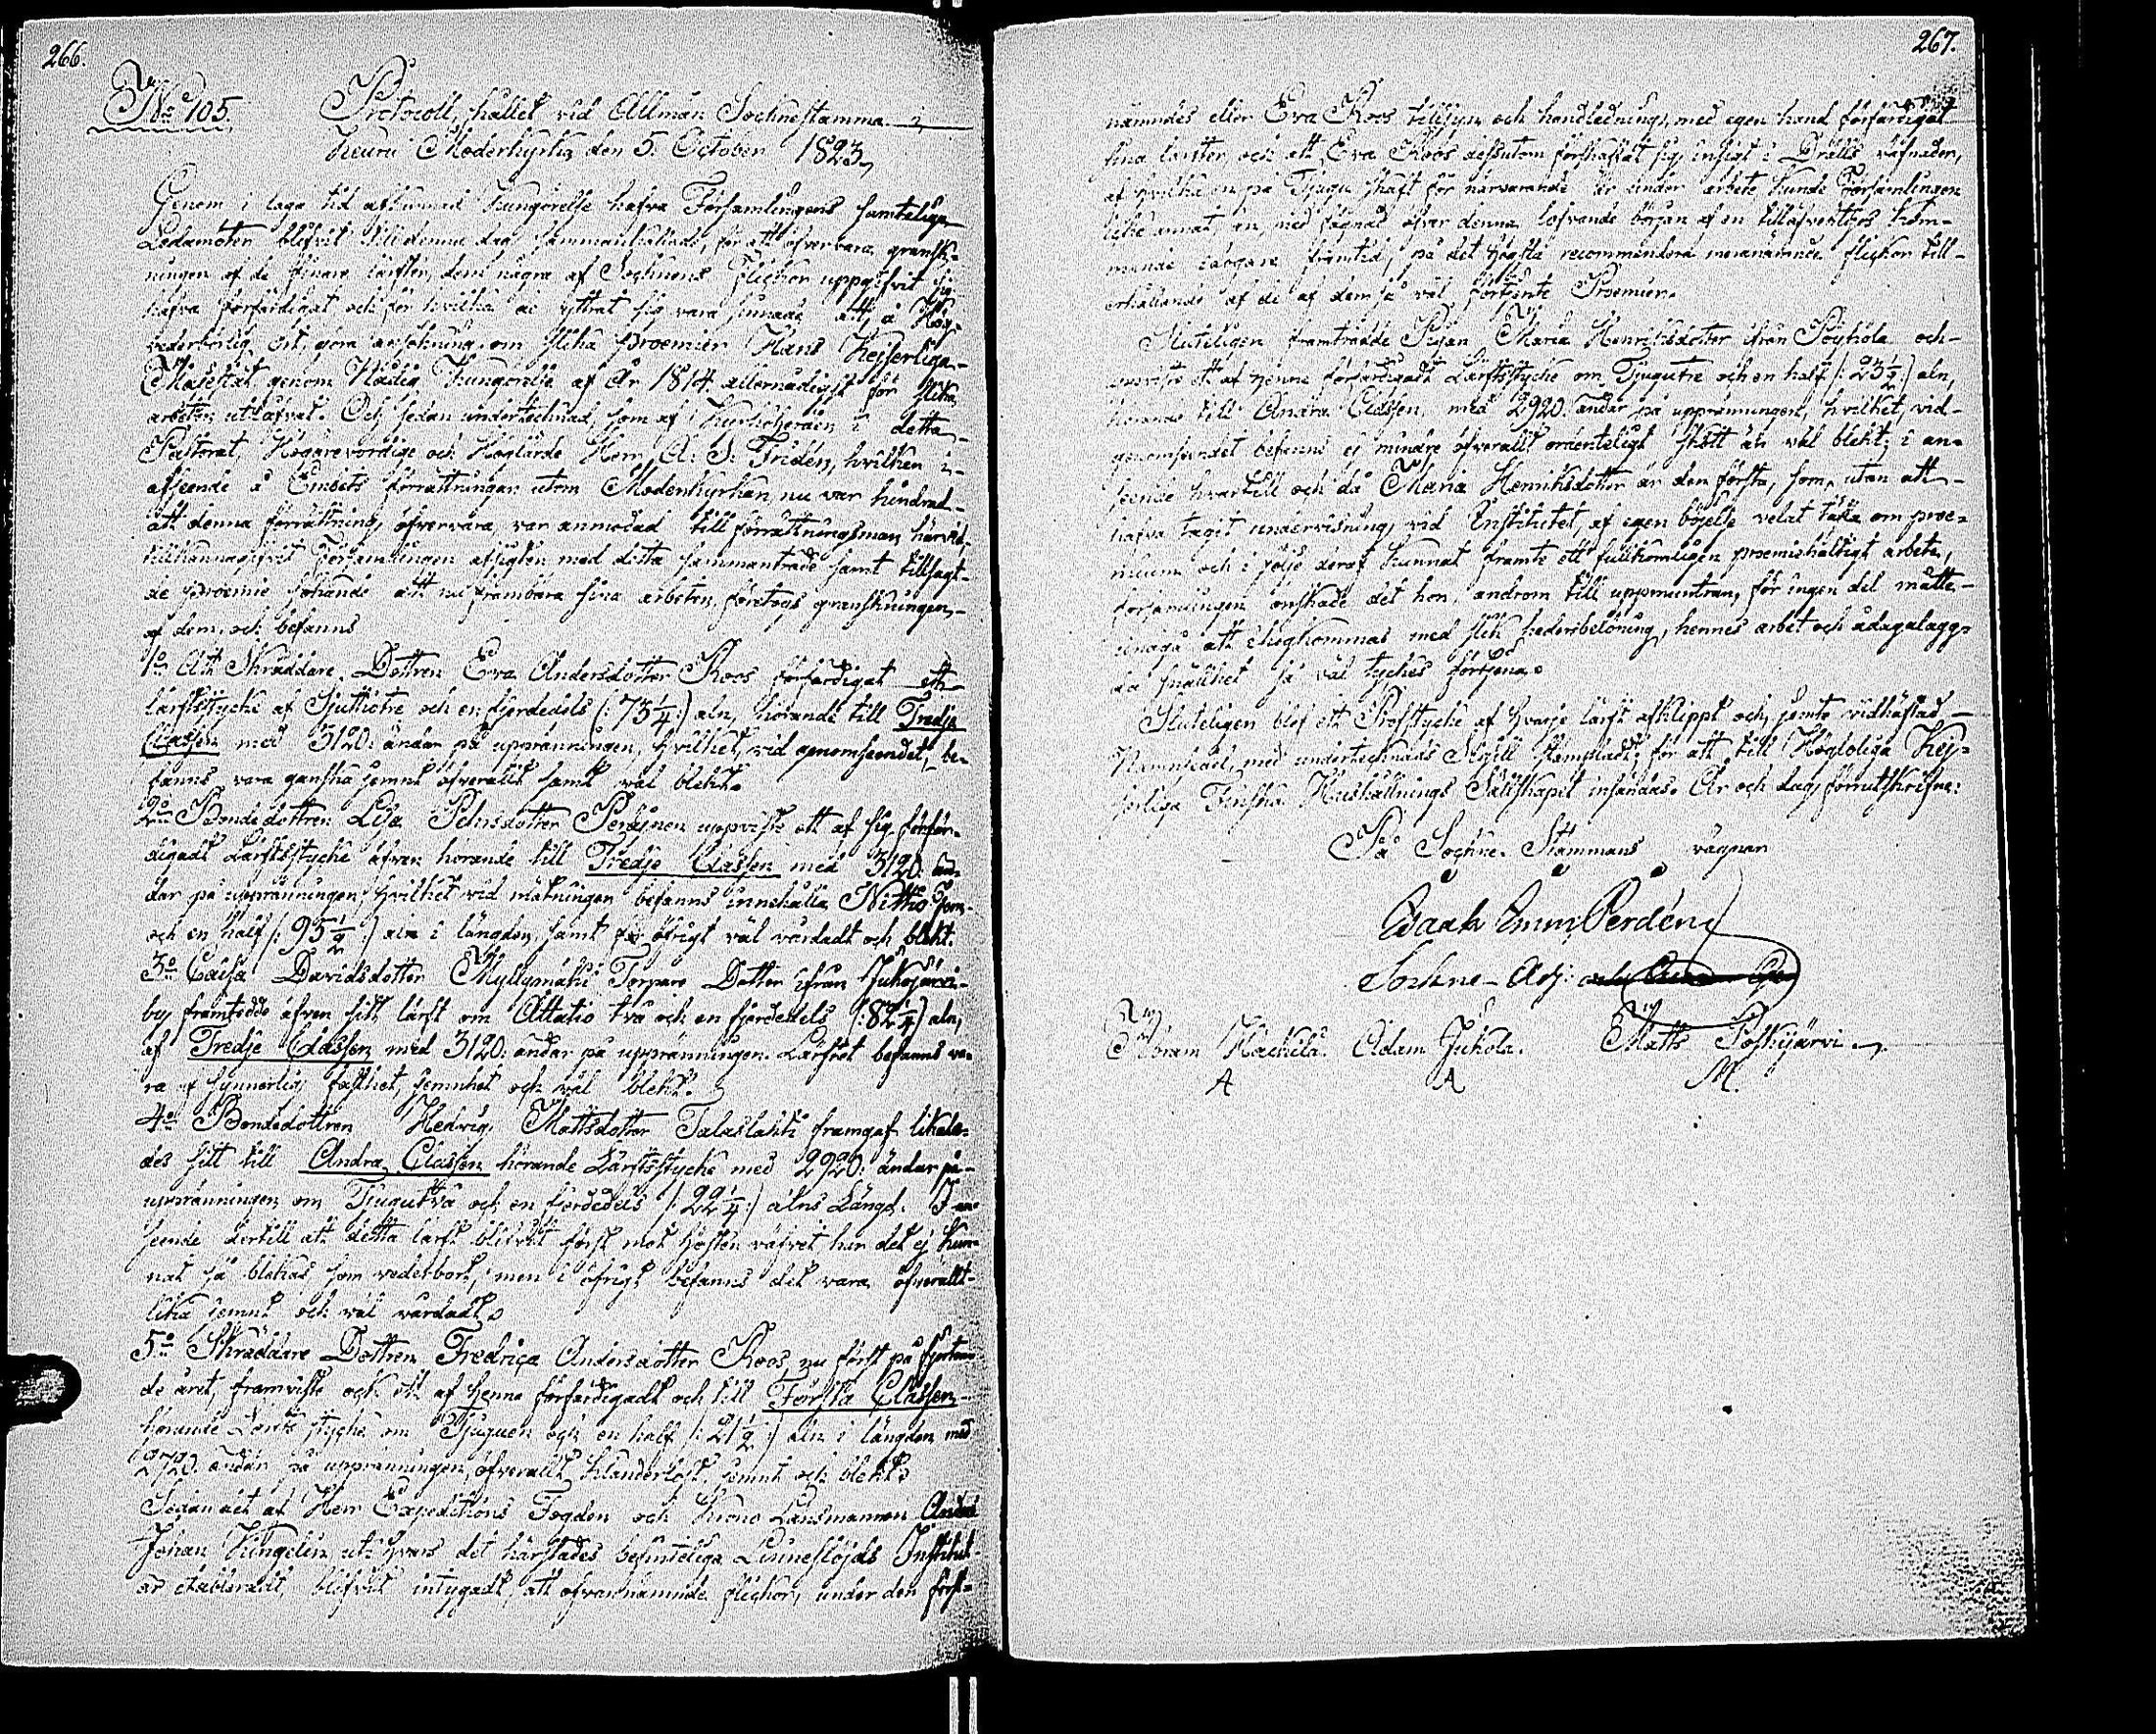 266.
No 105. Protocoll, hållet vid Allmän Sochnestämma i
Keuru Moderkyrka den 5. October 1823.
Genom i laga tid afkunnad Kungörelse hafva Församlingens samteliga
Ledamöter blifvit till denna dag sammankallade, för att öfvervara gransk-
ningen af de finare lärfter, dem några af Sochnens Flickor uppgifvit sig
hafva förfärdigat och för hvilka de yttrat sig vara sinnade att, å Hög-
vederbörlig ort, göra ansökning om slika Præmier Hans Kejserliga
Majestät, genom Nådig Kungörelse af År 1814 allernådigst för slika
arbeten utlåfvat. Och sedan undertecknad, som af Kyrkoherden i detta
Pastorat, Högärevördige och Höglärde Herr A. J. Fridén, hvilken i
afseende å Embets förrättningar utom Moderkyrkan nu var hindrad
att denna förrättning öfvervara, var anmodad till förrättningsman härvid,
tillkännagifvit Församlingen afsigten med detta sammanträde samt tillsagt
de Præmie sökande att nu frambära sina arbeten, företogs granskningen
af dem, och befanns
1o Att Skräddare Dottren Eva Andersdotter Roos förfärdigat ett
lärftsstycke af Sjuttiotre och en fjerdedels (: 73 1/4 :) aln, hörande till Tredje
Classen med 3120. ändar på uppränningen, hvilket, vid genomseendet, be-
fanns vara ganska jemnt öfverallt samt väl blekt.
2o Bondedottren Lisa Pehrsdotter Peräinen uppviste ett af sig förfär-
digadt Lärftsstycke äfven hörande till Tredje Classen med 3120. än-
dar på uppränningen, hvilket vid mätningen befanns innehålla Nittio fem
och en half (: 95 1/2 :) aln i längden, samt för öfrigt väl vårdadt och blekt.
3o Caisa Davidsdotter Myllymäki Torpare Dotter ifrån Jukojärvi
by framtedde äfven sitt lärft om Åttatio två och en fjerdedels (: 82 1/4 :) aln,
af Tredje Classen med 3120. ändar på uppränningen. Lärftet befanns va-
ra af synnerlig fasthet, jemnhet och väl blekt.
4o Bondedottren Hedvig Mattsdotter Talaslahti framgaf likale-
des sitt till Andra Classen hörande Lärftsstycke med 2920. ändar på
uppränningen om Tjugutvå och en fjerdedels (: 22 1/4 :) alns Längd. I an-
seende dertill att detta lärft blifvit först mot hösten väfvet har det ej kun-
nat så blekas som vederbort, men i öfrigt befanns det vara öfverallt
lika jemnt och väl vårdadt.
5o Skräddare Dottren Fredrica Andersdotter Roos, nu först på fjorton-
de året, framviste och ett af henne förfärdigadt och till Första Classen
hörande Lärfts stycke om Tjuguen och en half (: 21 1/2 :) aln i längden med
2720. ändar på uppränningen, öfverallt klanderlöst, jemnt och blekt.
Sedan det af Herr Expeditions Fogden och Krono Länsmannen Anders
Johan Kingelin uti hvars det härstädes befinteliga Linneslöjds Institut
är etableradt, blifvit intygadt, att ofvannämnde flickor, under den först-
267.
nämndes eller Eva Roos tillsyn och handledning, med egen hand förfärdigat
sina lärfter, och att Eva Roos dessutom förskaffat sig insigt i Drälls väfnader,
af hvilka en på Tjugu skaft för närvarande är under arbete kunde Församlingen
icke annat, än, med fägnad öfver denna lofvande början af en tilläfventyrs kom-
mande idogare framtid, på det högsta recommendera meranämnde flickor till
erhållande af de af dem så väl förtjente Præmier.
Sluteligen framträdde Pigan Maria Henriksdotter ifrån Pöyhölä och
uppviste ett af henne förfärdigadt Lärftsstycke om Tjugutre och en half (: 23 1/2 :) aln,
hörande till Andra Classen med 2920. ändar på uppränningen, hvilket, vid
genomseendet befanns ej mindre öfverallt ordenteligt skött än väl blekt; i an-
seende hvartill och då Maria Henriksdotter är den första, som, utan att
hafva tagit undervisning vid Institutet, af egen böjelse velat täfla om præ-
mium och i följe deraf kunnat framte ett fullkomligen præmiehaltigt arbete,
församlingen önskade det hon, androm till uppmuntran, för ingen del måtte
undgå att ihogkommas med slik hedersbelöning, hennes arbet och ådagalagg-
da snällhet så väl tyckes förtjena.
Sluteligen blef ett Profstycke af hvarje lärft afklippt och, jemte vidhäftad
Namnsedel, med undertecknads Sigill stemplade, för att till Högloliga Kej-
serliga Finska Hushållnings Sällskapet insändas. År och dag förrutskrifne:
På Sochne Stämmans vägnar
Isaak Emin Perdén
Sochne-Adj:
Adam Jukola. Matts Poskijärvi
A A M.